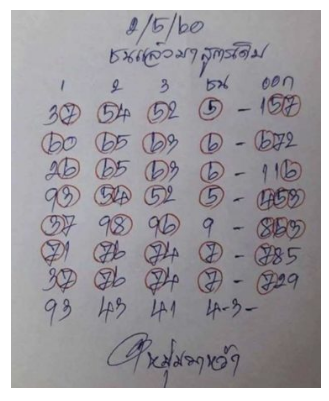 2/5/60
ชนแล้วมาสูตรเดิม
1 2 3 ชน ออก
37 54 52 5 - 157
60 65 63 6 - 672
26 65 63 6 - 116
93 54 52 5 - 453
37 98 96 9 - 863
71 76 74 7 - 785
37 76 74 7 - 729
93 43 41 4-3-